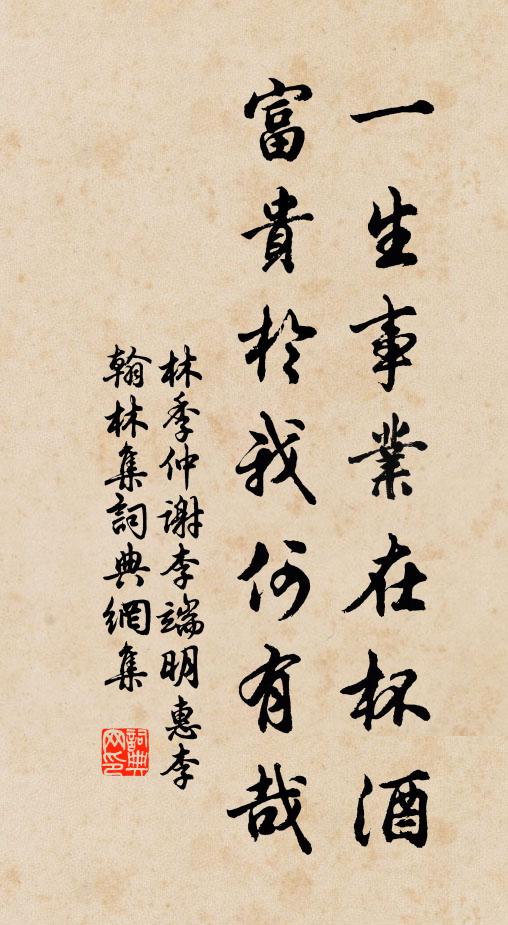 一生事業在杯酒
富貴於我何有哉
林季仲謝李端明惠李
翰林集詞典網集
詞典
网印